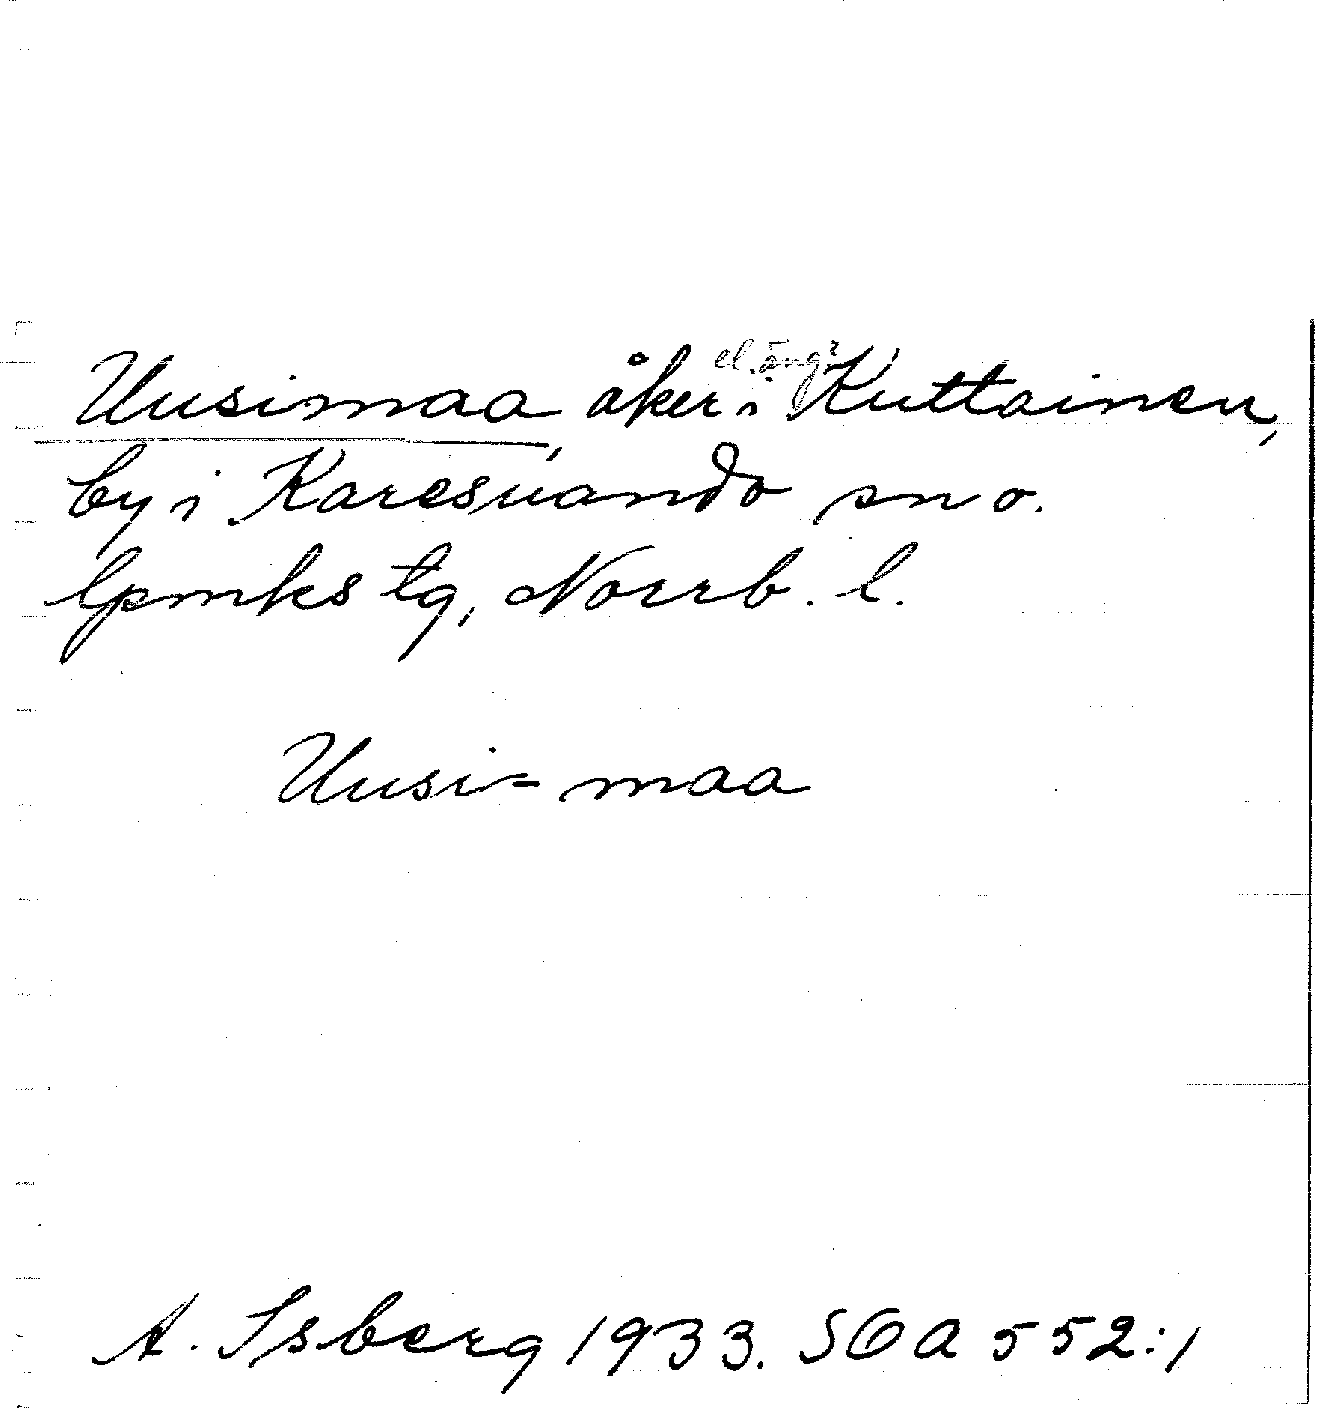 Uusimaa, åker el. äng? i Kuttainen,
by i Karesuando sn o.
lpmks tg, Norrb. l.
Uusi-maa
A. Isberg 1933. SOA 552:1